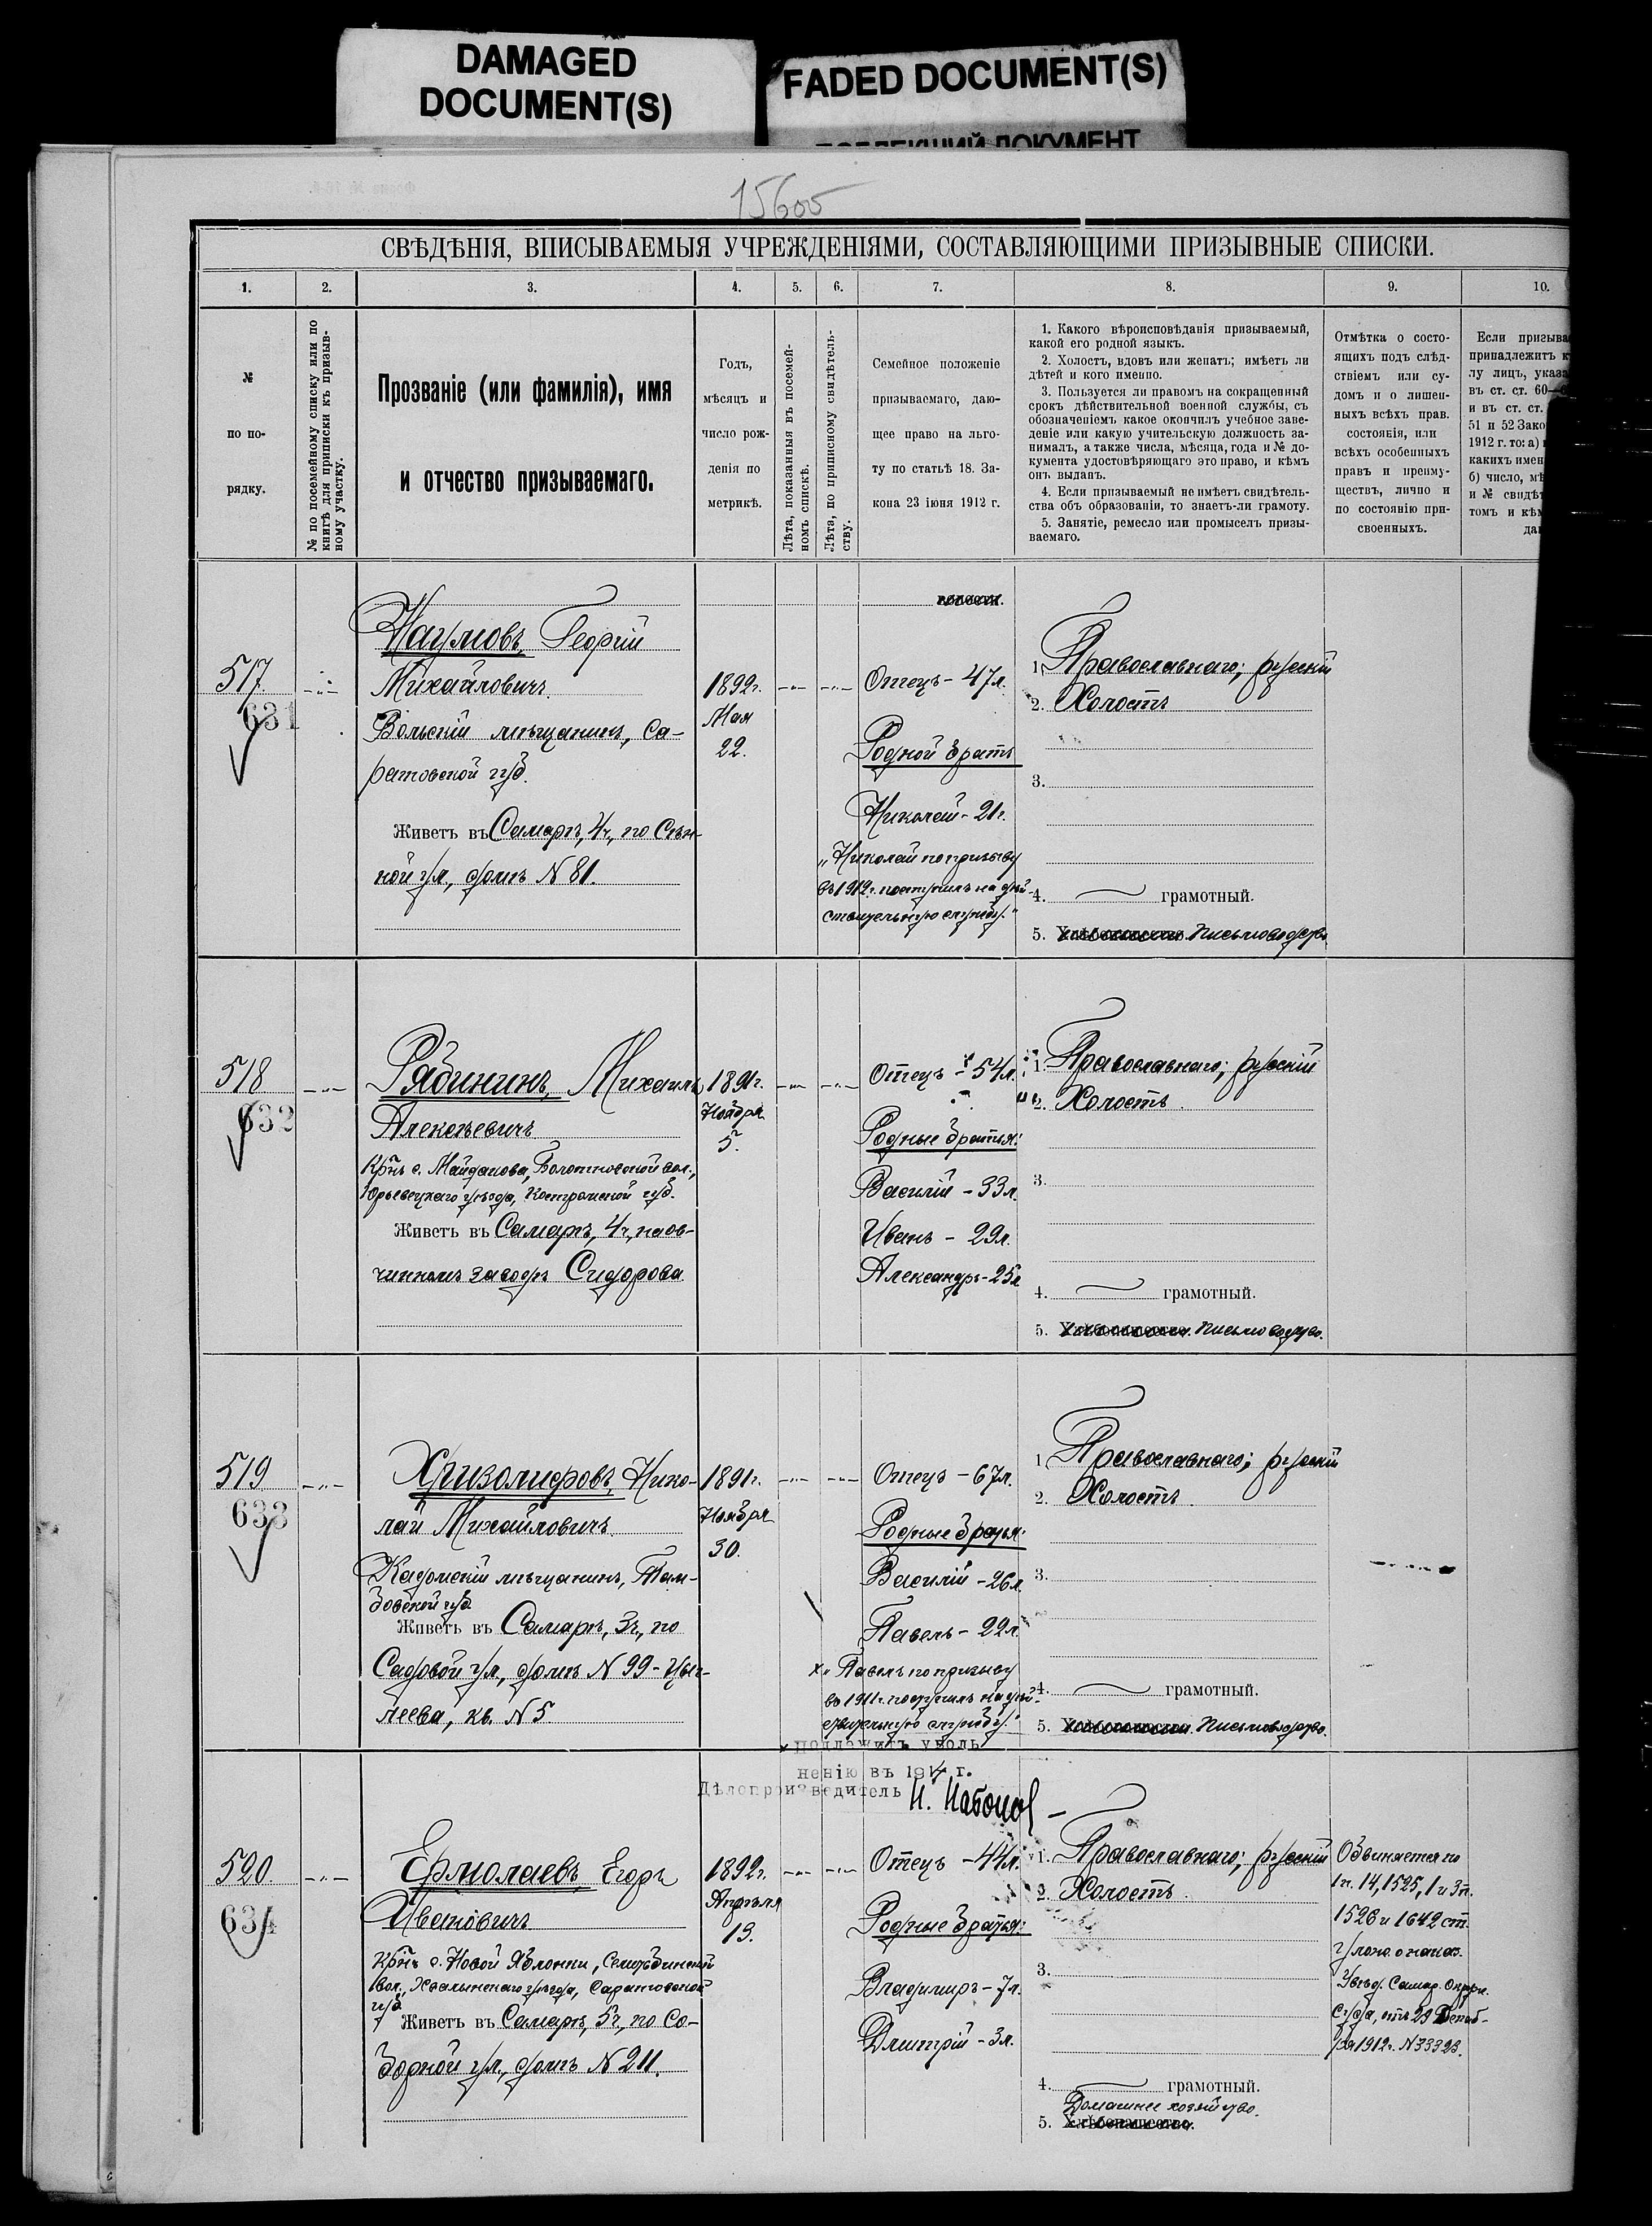 DAMAGED
DOCUMENT(S)
FADED DOCUMENT(S)
15600
СВѢДѢНІЯ, ВПИСЫВАЕМЫЯ УЧРЕЖДЕНІЯМИ, СОСТАВЛЯЮЩИМИ ПРИЗЫВНЫЕ СПИСКИ.
1.
2.
3.
4.
5.
6.
7.
8.
9.
10.
№
по по-
рядку.
№ по посемейному списку или по
книгѣ для приписки къ призыв-
ному участку.
Прозваніе (или фамилія), имя
и отчество призываемаго.
Годъ,
мѣсяцъ и
число рож-
денія по
метрикѣ.
Лѣта, показанныя въ посемей-
номъ спискѣ.
Лѣта, по приписному свидѣтель-
ству.
Семейное положеніе
призываемаго, даю-
щее право на льго-
ту по статьѣ 18. За-
кона 23 іюня 1912 г.
1. Какого вѣроисповѣданія призываемый,
какой его родной языкъ.
2. Холостъ, вдовъ или женатъ; имѣетъ ли
дѣтей и кого именно.
3. Пользуется ли правомъ на сокращенный
срокъ дѣйствительной военной службы, съ
обозначеніемъ какое окончилъ учебное заве-
деніе или какую учительскую должность за-
нималъ, а также числа, мѣсяца, года и № до-
кумента удостовѣряющаго это право, и кѣмъ
онъ выданъ.
4. Если призываемый не имѣетъ свидѣтель-
ства объ образованіи, то знаетъ-ли грамоту.
5. Занятіе, ремесло или промыселъ призы-
ваемаго.
Отмѣтка о состо-
ящихъ подъ слѣд-
ствіемъ или су-
домъ и о лишен-
ныхъ всѣхъ прав.
состоянія, или
всѣхъ особенныхъ
правъ и преиму-
ществъ, лично и
по состоянію при-
своенныхъ.
Если призыва
принадлежитъ к
лу лицъ, указа
въ ст. ст. 60—
и въ ст. ст.
51 и 52 Зако
1912 г. то: а)
какихъ имен
б) число, мѣ
и № свидѣт
томъ и кѣм
да
517
631
Наумовъ, Георгій
Михайловичъ
Вольскій мѣщанинъ, Са-
ратовской губ.
Живетъ въ Самарѣ, 4ч., по Сѣн-
ной ул., домъ N 81.
1892г.
Мая
22.
Отецъ - 47л.
Родной братъ
Николай - 21г.
„Николай по призыву
въ 1912г. поступилъ на дѣй-
ствительную службу."
1. Православнаго; русскій
2. Холостъ
3.
4. грамотный.
5. Хлѣбопашество. Письмоводство
518
632
Рябининъ, Михаилъ
Алексѣевичъ
Крнъ с. Майдакова, Болотновской вол.,
Юрьевецкаго уѣзда, Костромской губ.
Живетъ въ Самарѣ, 4ч., на ов-
чинномъ заводѣ Сидорова
1891г.
Ноября
5.
Отецъ - 54л.
Родные братья:
Василій - 33л.
Иванъ - 29л.
Александръ - 25л.
1. Православнаго; русскій
2. Холостъ.
3.
4. грамотный.
5. Хлѣбопашество. Письмоводство.
519
633
Хризолиѳовъ, Нико-
лай Михайловичъ
Кадомскій мѣщанинъ, Там-
бовской губ.
Живетъ въ Самарѣ, 3ч., по
Садовой ул., домъ N 99 - Цып-
леева, кв. N 5
1891г.
Ноября
30.
Отецъ - 67л.
Родные братья:
Василій - 26л.
Павелъ - 22л.
х „Павелъ по призыву
въ 1911г. поступилъ на дѣй-
ствительную службу."
х подлежитъ уволь
ненію въ 1914 г.
Дѣлопроизводитель
1. Православнаго; русскій
2. Холостъ.
3.
4. грамотный.
5. Хлѣбопашество. Письмоводство.
520.
634
Ермолаевъ, Егоръ
Ивановичъ
Крнъ с. Новой Яблонки,
вол., Хвалынскаго уѣзда, Саратовской
губ
Живетъ въ Самарѣ, 5ч., по Со-
борной ул., домъ N 211.
1892г.
Апрѣля
13.
Отецъ - 44л.
Родные братья:
Владимиръ - 7л.
Дмитрій - 3л.
1. Православнаго; русскій
2. Холостъ.
3.
4. грамотный.
Домашнее хозяйство.
5. Хлѣбопашество.
Обвиняется по
1п. 14, 1525, 1 и 3п.
1526 и 1642 ст.
улож. о наказ.
Увѣд. Самар. Окружн.
Суда, отъ 29 Декаб-
ря 1912г. N 33323.